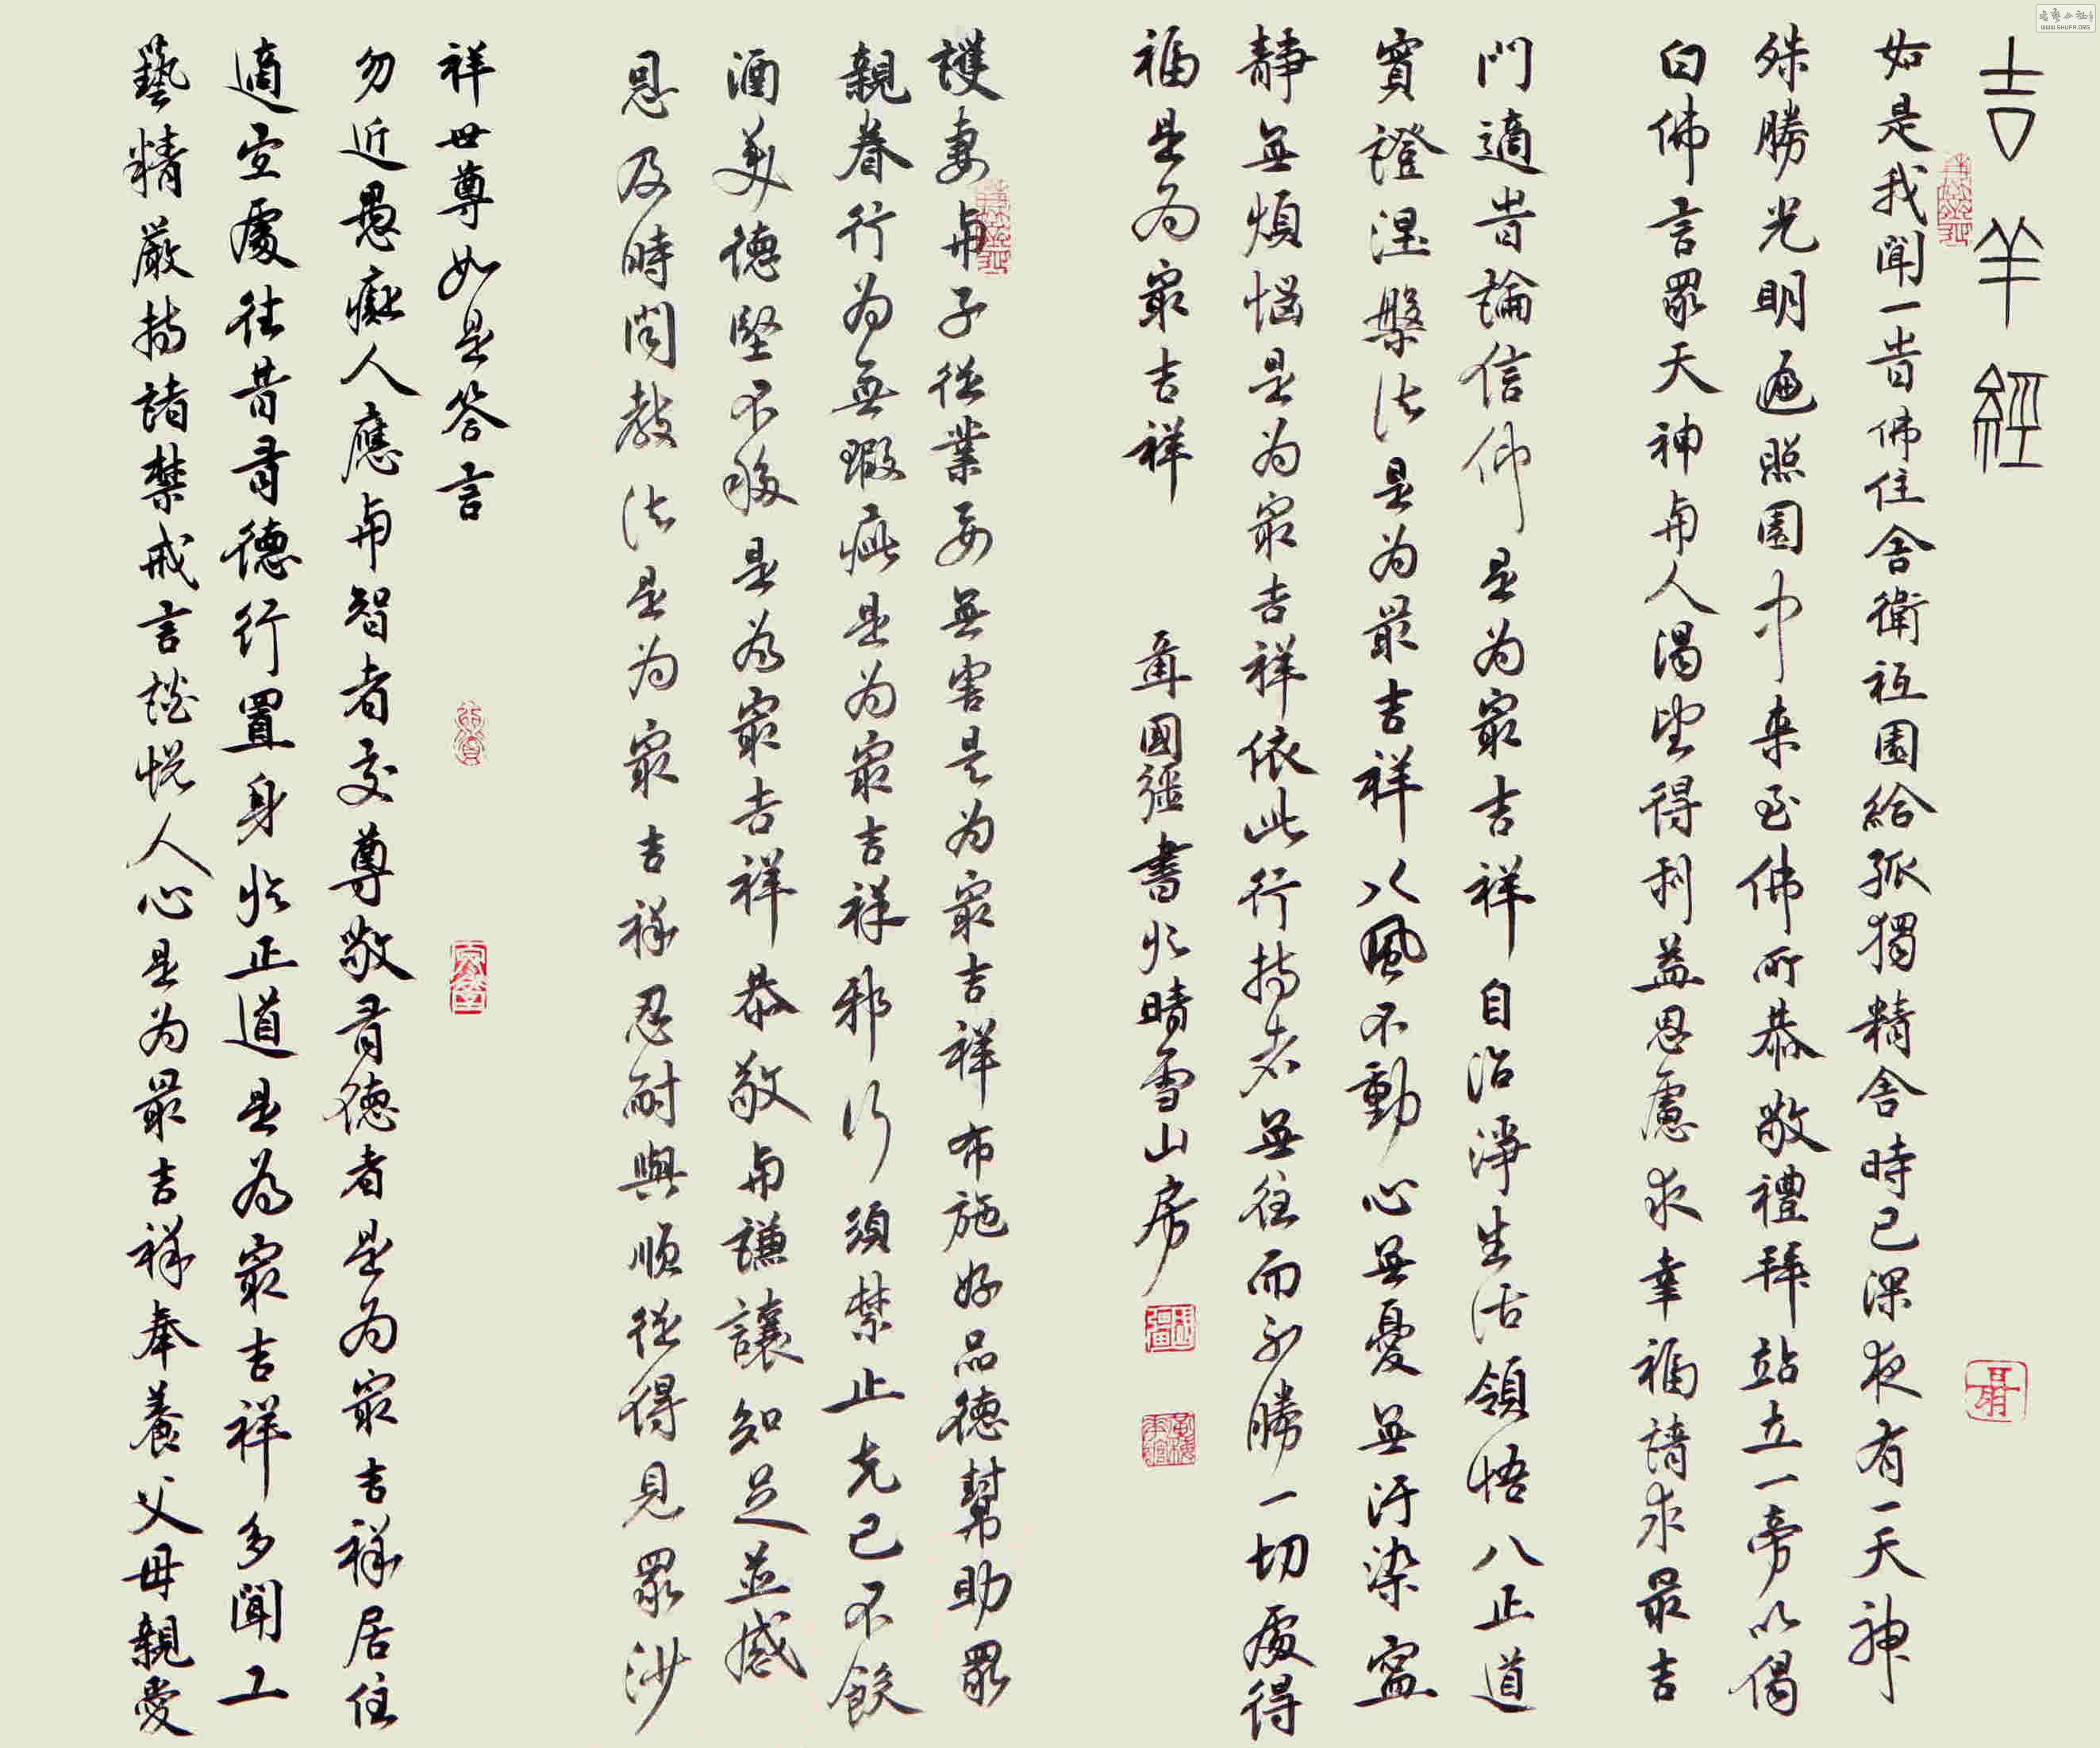 吉羊經
如是我聞一旹佛住舍衛祇園給孤獨精舍時已深夜有一天神
殊勝光明遍照園中来至佛所恭敬禮拜站立一旁以偈
白佛言眾天神與人渴望得利益思慮求幸福請求最吉
祥世尊如是答言
勿近愚癡人應與智者交尊敬有德者是為最吉祥居住
適宜處往昔有德行置身於正道是為最吉祥多聞工
藝精嚴持諸禁戒言談悅人心是為最吉祥奉養父母親愛
護妻與子從業要無害是為最吉祥布施好品德幫助眾
親眷行為無瑕疵是為最吉祥邪行須禁止克己不飲
酒美德堅不移是為最吉祥恭敬與謙讓知足並感
恩及時聞教法是為最吉祥忍耐與順從得見眾沙
門適旹論信仰是為最吉祥自治淨生活領悟八正道
實證涅槃法是為最吉祥八風不動心無憂無汙染寧
靜無煩惱是為最吉祥依此行持者無往而不勝一切處得
福是為最吉祥 聶國疆書於晴雪山房
聶
WWW.SHUFR.ORG